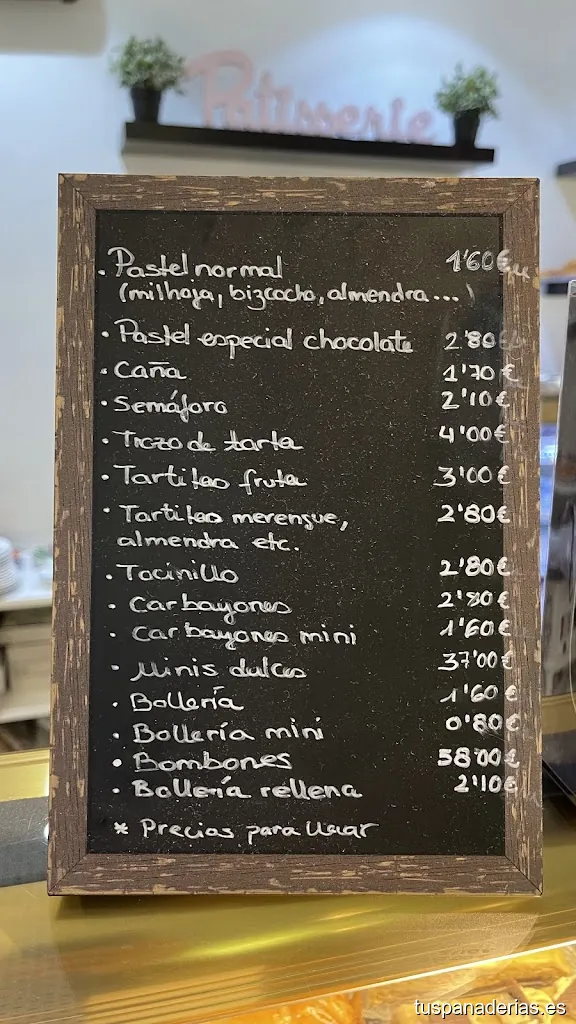 Patisserie
· Pastel normal 1'60€
(milhoja, bizcocho, almendra...)
· Pastel especial chocolate 2'80€
· Caña 1'70€
· Semáforo 2'10€
· Trozo de tarta 4'00€
· Tartitas fruta 3'00€
· Tartitas merengue, 2'80€
almendra etc.
· Tocinillo 2'80€
· Carbayones 2'80€
· Carbayones mini 1'60€
· Minis dulces 37'00€
· Bollería 1'60€
· Bollería mini 0'80€
· Bombones 58'00€
· Bollería rellena 2'10€
* Precios para llevar
tuspanaderias.es